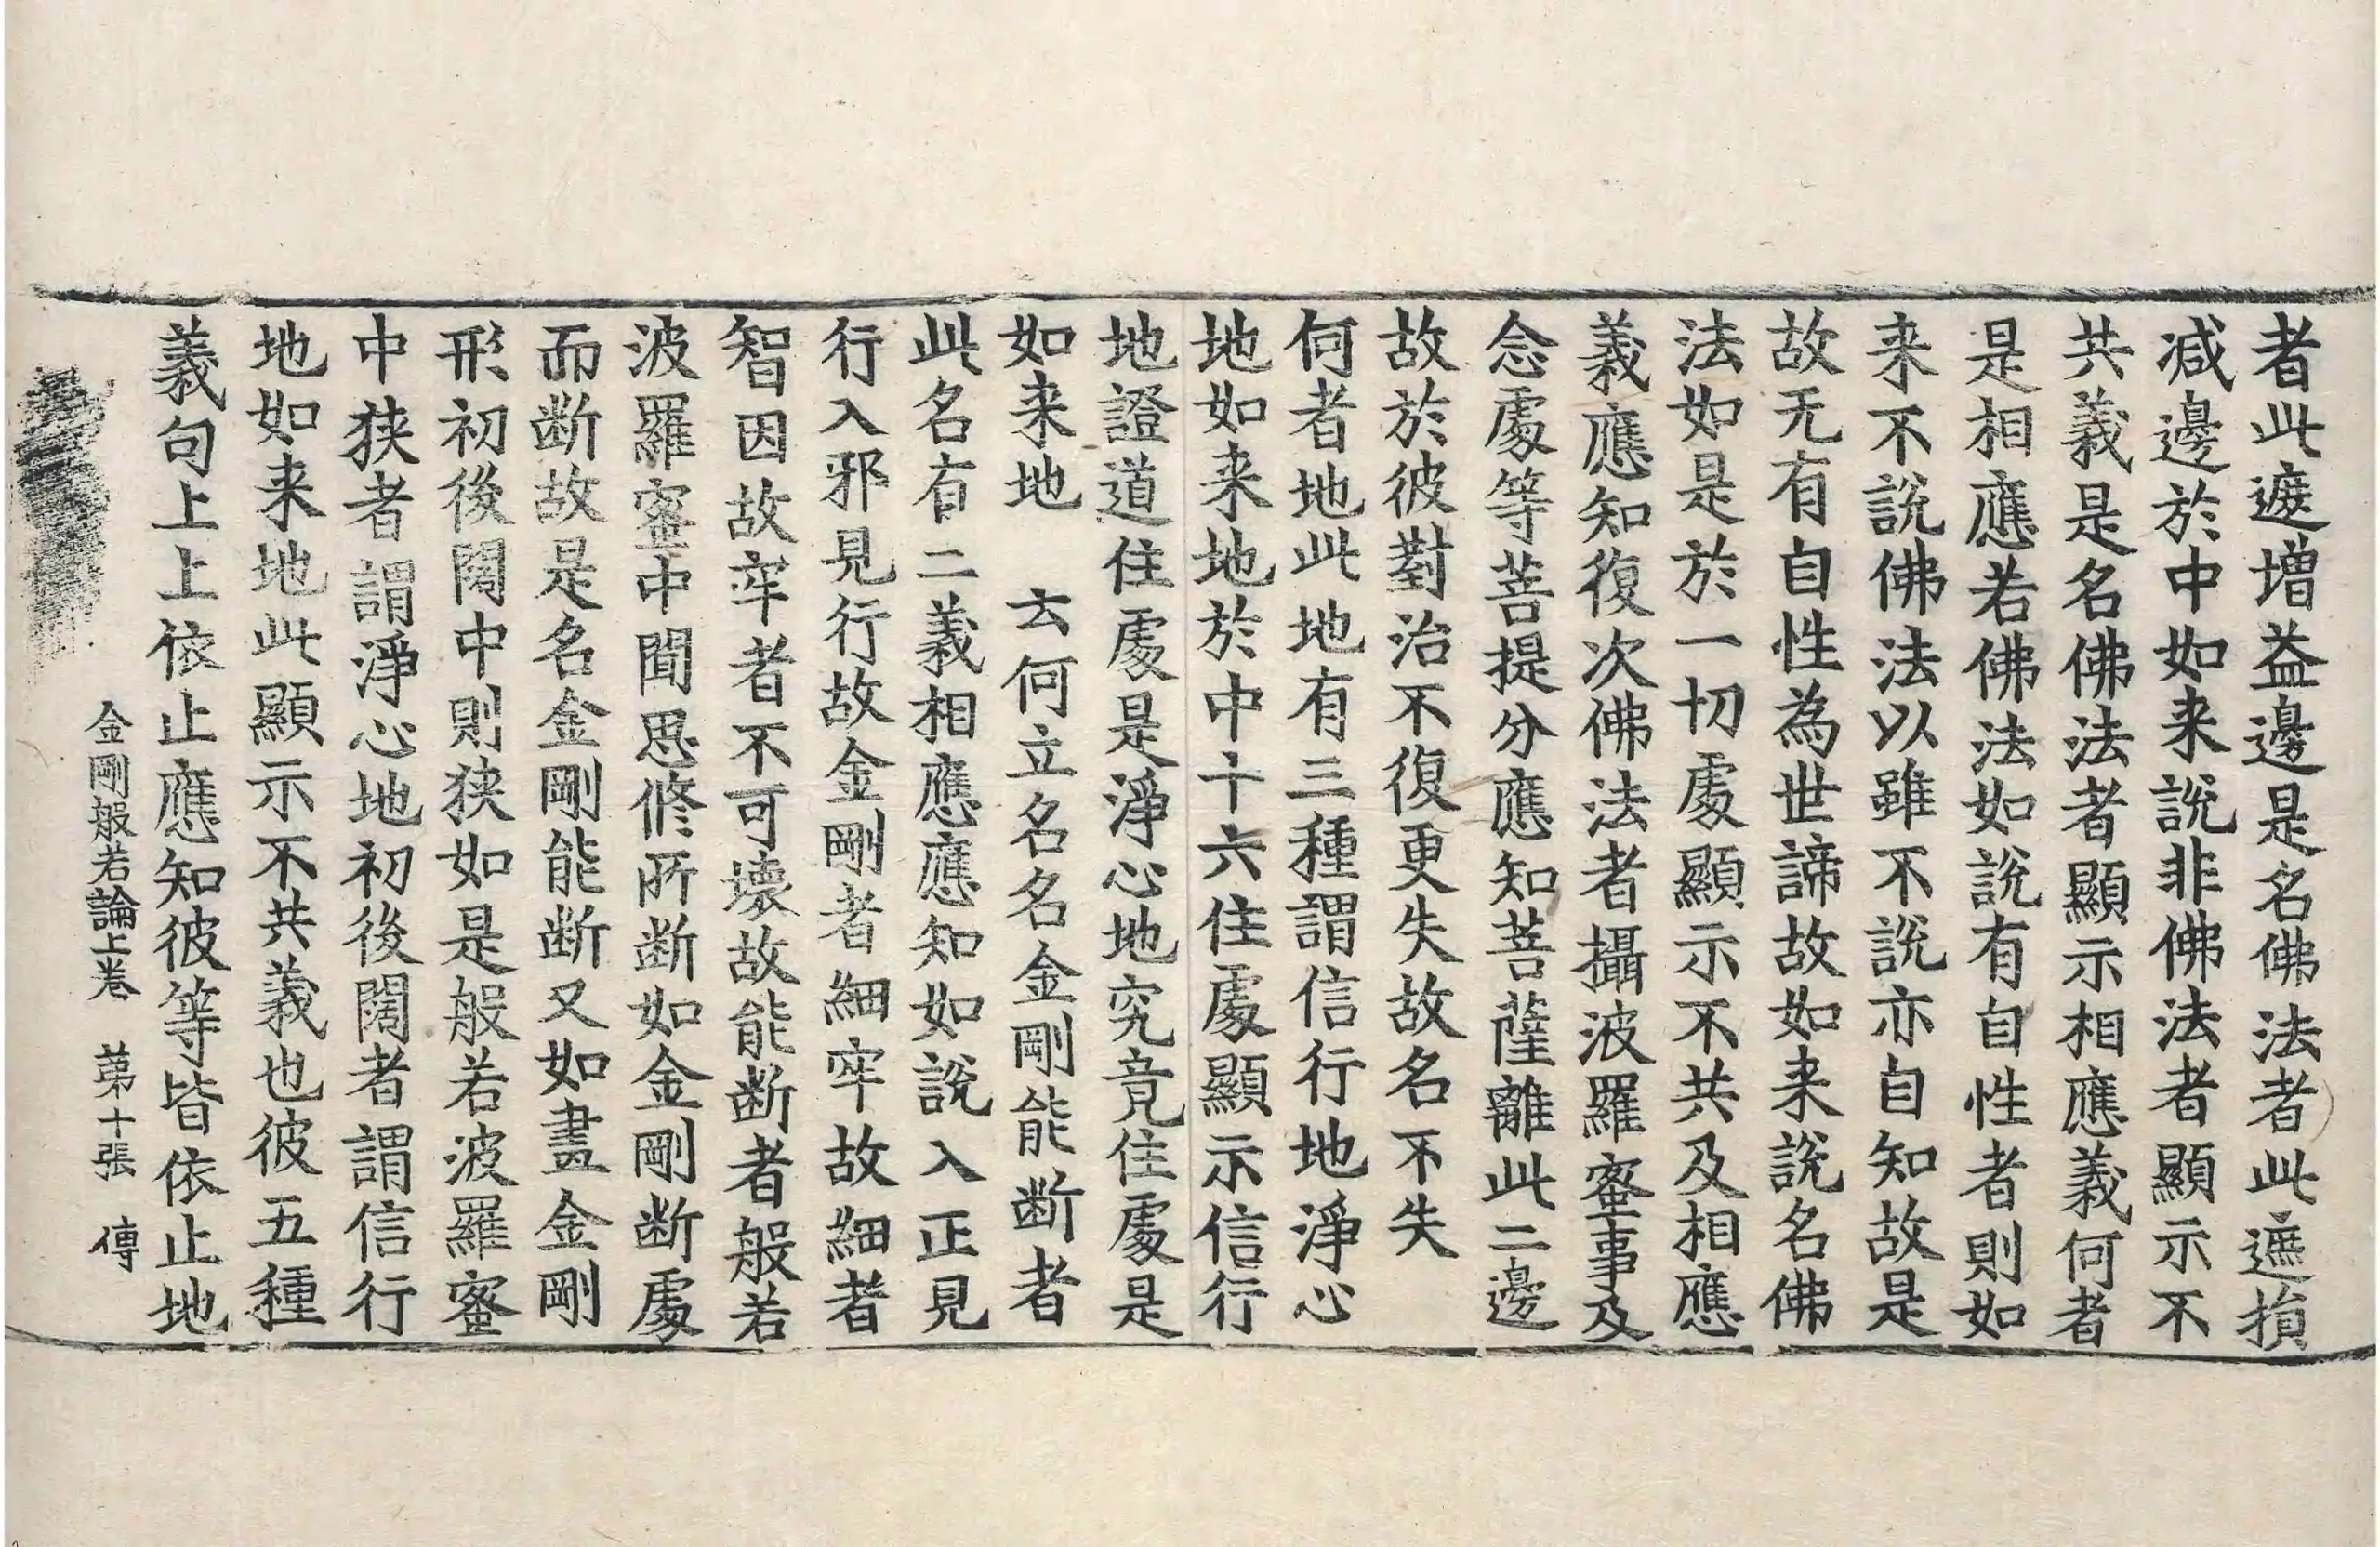 者此遮增益邊是名佛法者此遮損
减邊於中如来說非佛法者顯示不
共義是名佛法者顯示相應義何者
是相應若佛法如說有自性者則如
来不說佛法以雖不說亦自知故是
故无有自性為世諦故如来說名佛
法如是於一切處顯示不共及相應
義應知復次佛法者攝波羅蜜事及
念處等菩提分應知菩薩離此二邊
故於彼對治不復更失故名不失
何者地此地有三種謂信行地淨心
地如来地於中十六住處顯示信行
地證道住處是淨心地究竟住處是
如来地　云何立名名金剛能断者
此名有二義相應應知如說入正見
行入邪見行故金剛者細牢故細者
智因故牢者不可壞故能断者般若
波羅蜜中聞思修所断如金剛断處
而断故是名金剛能断又如畫金剛
形初後闊中則狹如是般若波羅蜜
中狹者謂淨心地初後闊者謂信行
地如来地此顯示不共義也彼五種
義句上上依止應知彼等皆依止地
金剛般若論上卷　第十張　傳